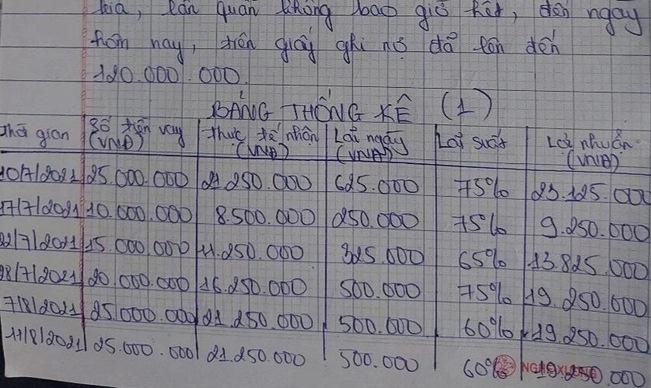 nữa, lẩn quẩn không bao giờ hết, đến ngay
hôm nay, trên giấy ghi nợ đã lên đến
120.000.000
BẢNG THỐNG KÊ (1)
Thời gian Số tiền vay (VNĐ) Thực tế nhận (VNĐ) Lãi ngày (VNĐ) Lãi suất Lợi nhuận (VNĐ)
10/7/2021 25.000.000 21.250.000 625.000 75% 23.125.000
17/7/2021 10.000.000 8.500.000 250.000 75% 9.250.000
22/7/2021 15.000.000 11.250.000 325.000 65% 13.825.000
28/7/2021 20.000.000 16.250.000 500.000 75% 19.250.000
7/8/2021 25.000.000 21.250.000 500.000 60% 19.250.000
11/8/2021 25.000.000 21.250.000 500.000 60% 19.250.000